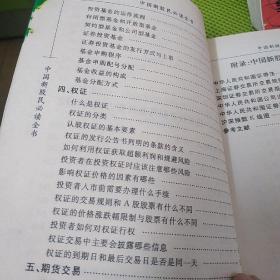 中国新股民必读全书
投资基金的运作流程
封闭型基金和开放型基金
契约型基金和公司型基金
证券投资基金
证券投资基金的发行方式与上市
基金申购程序
基金申购配号分配
基金收益的构成
基金分配方式
四、权证
什么是权证
权证的分类
认股权证的基本要素
权证的发行公告书列明的条款的含义
如何利用权证获取超额利润和规避风险
投资者在投资权证时应该注意哪些风险
影响权证价格的因素有哪些
投资者入市前需要办理什么手续
权证的交易规则和A股股票有什么不同
权证的价格涨跌幅限制与股票有什么不同
投资者如何对权证行权
权证交易中主要会披露哪些信息
权证的到期日和最后交易日是否是同一天
五、期货交易
中国新股民必读全书
附录:中国新股
中华人民共和国证券法
上海证券交易所交易规
深圳证券交易所交易
中华人民共和国公司
沪深股票
参考文献